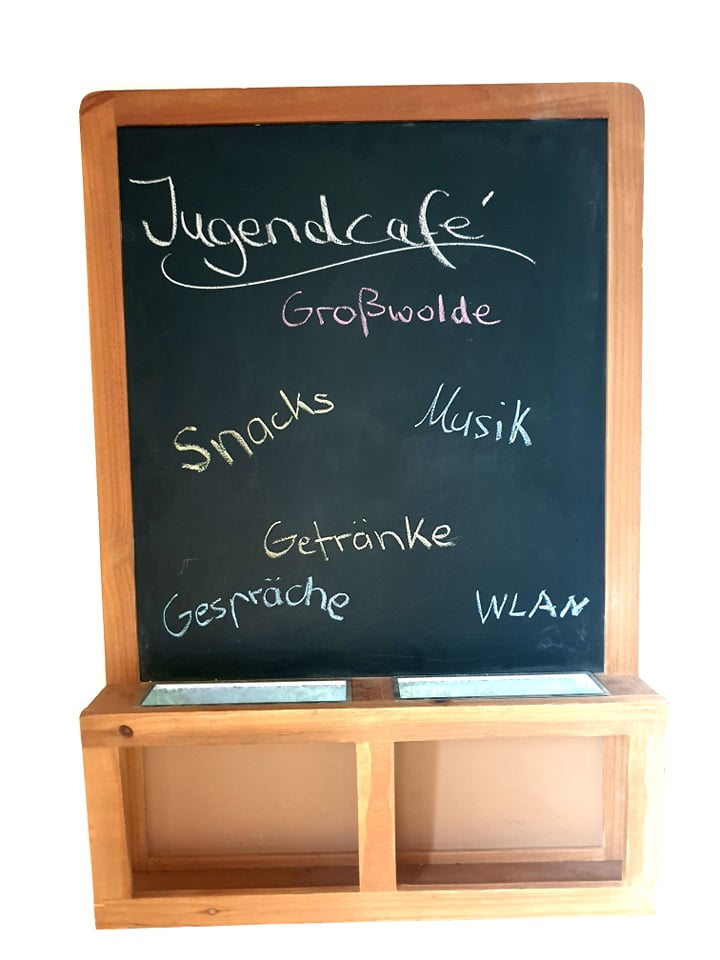 Jugendcafé
Großwolde
Snacks
Musik
Getränke
Gespräche
WLAN